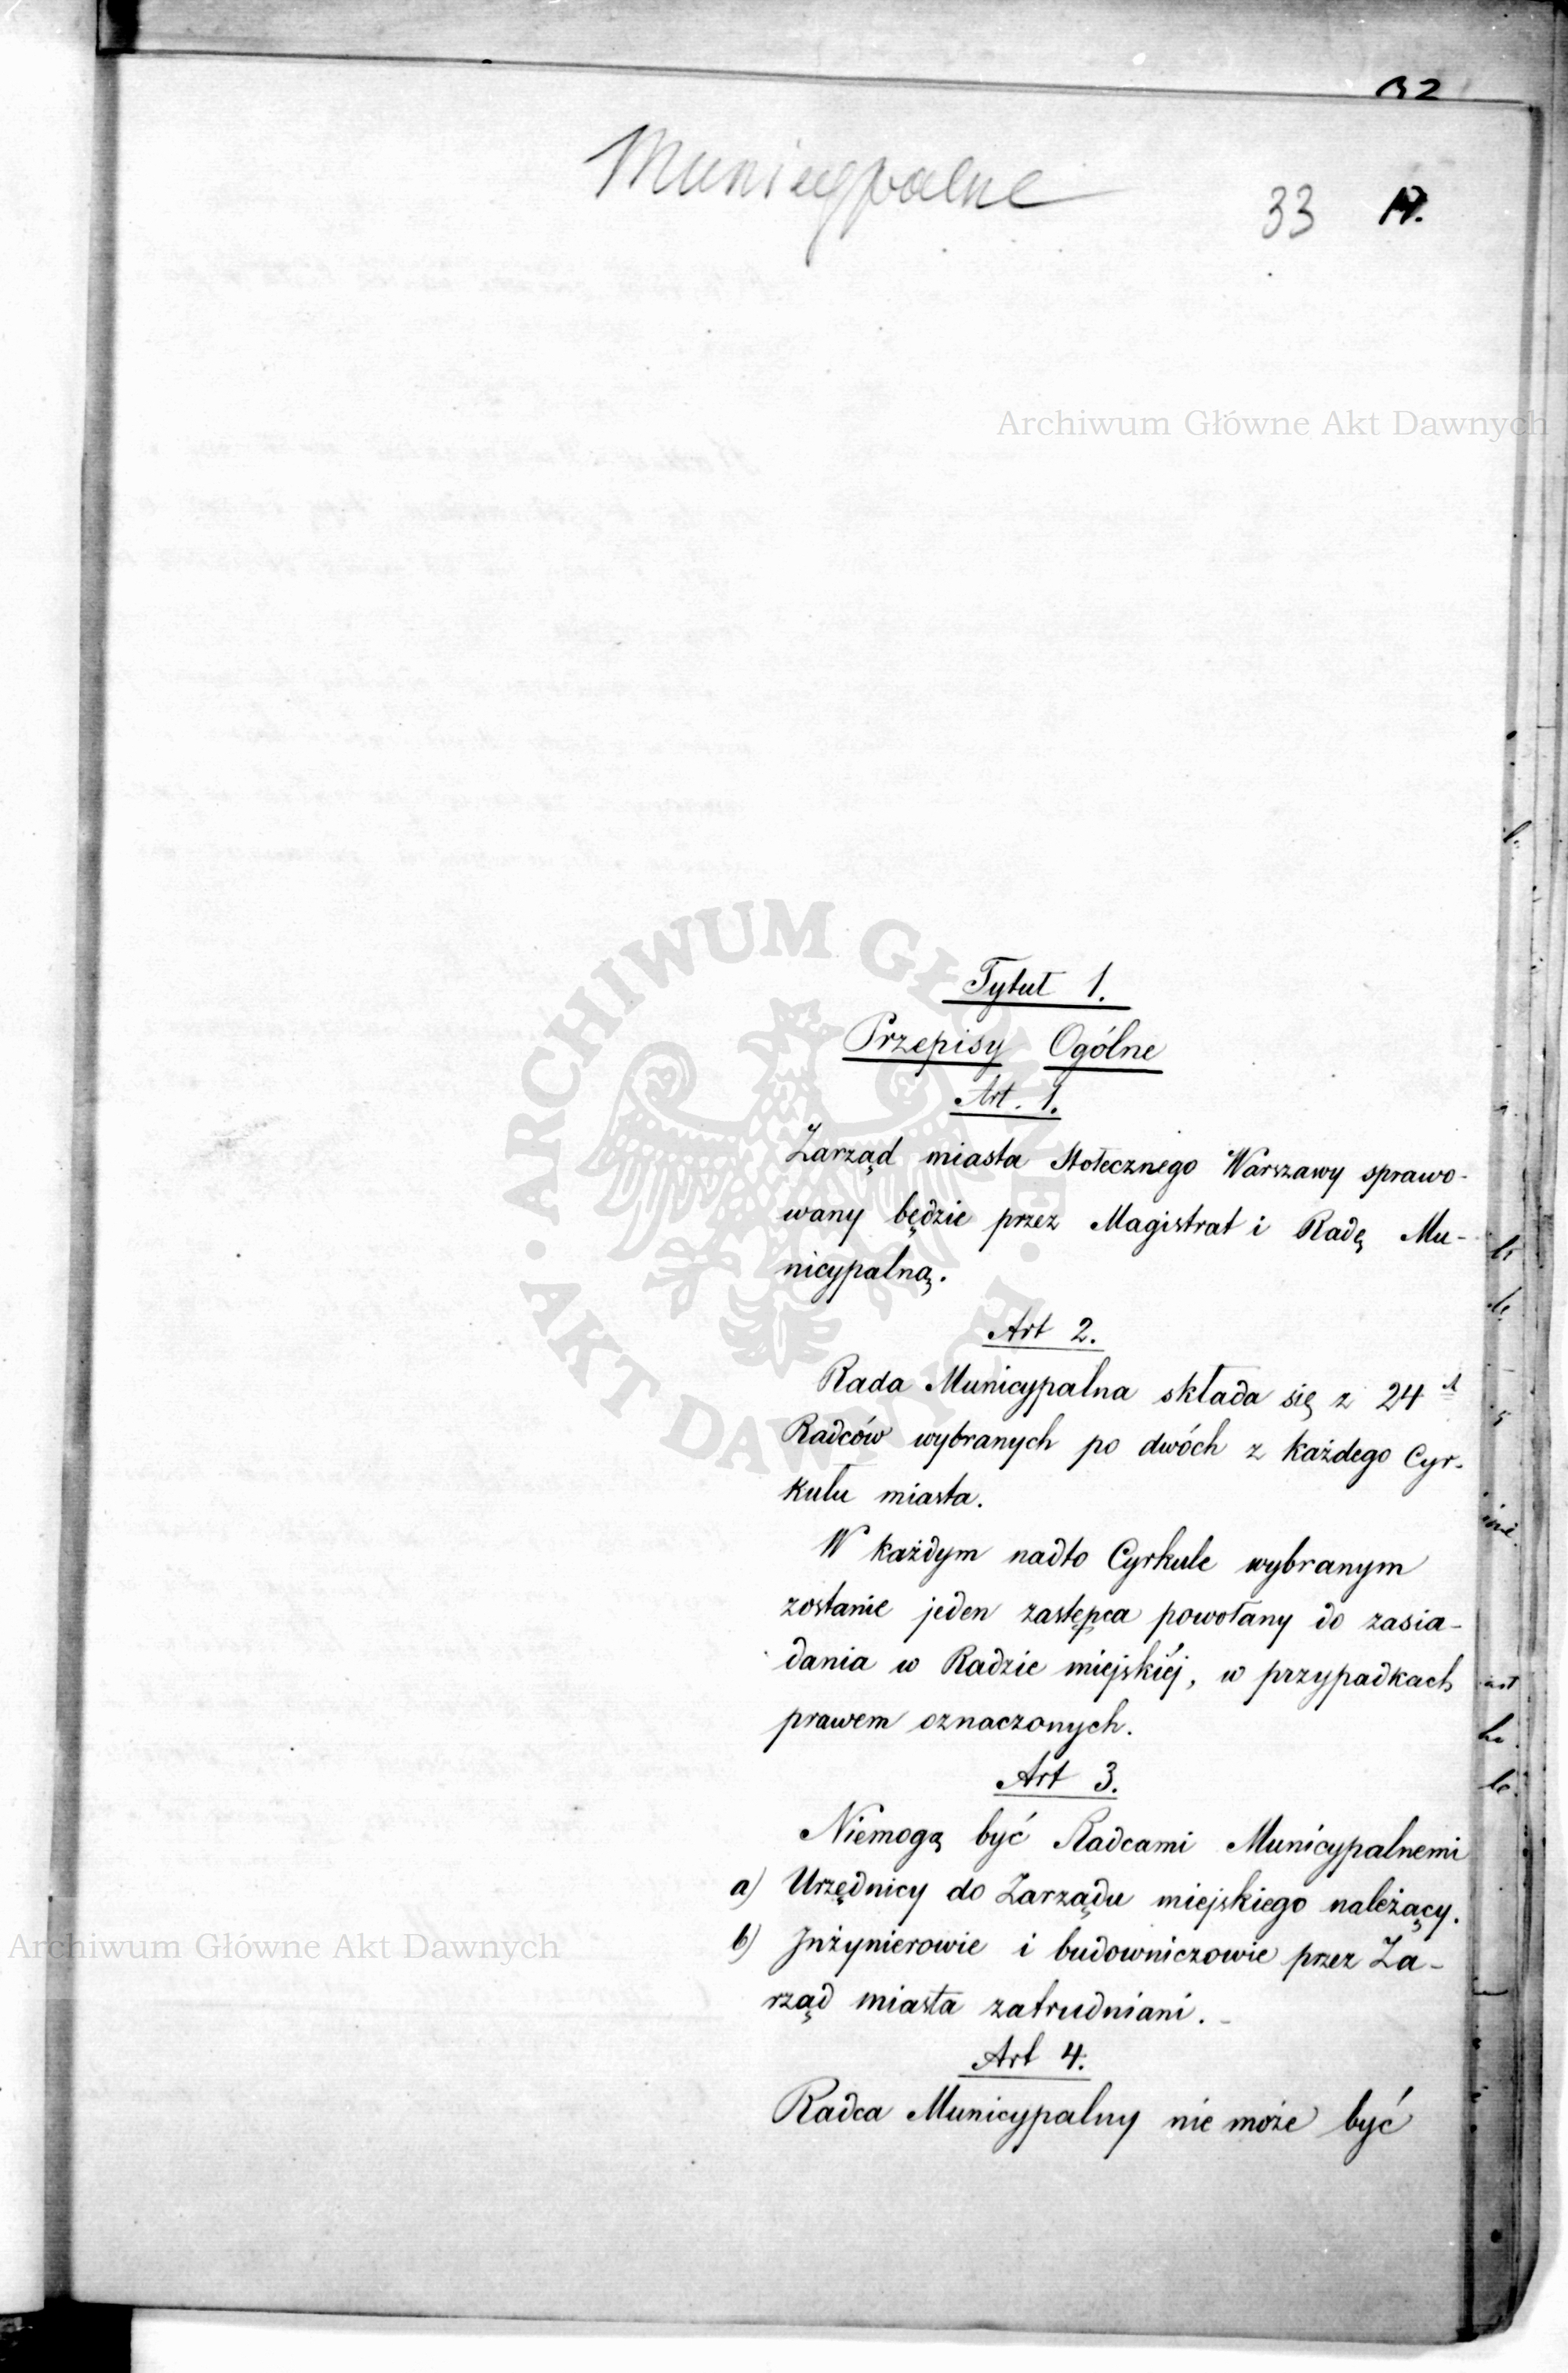 32
Municypalne
33
Archiwum Główne Akt Dawnych
ARCHIWUM GŁÓWNE AKT DAWNYCH
Tytuł 1.
Przepisy Ogólne
Art. 1.
Zarząd miasta stołecznego Warszawy sprawo-
wany będzie przez Magistrat i Radę Mu-
nicypalną.
Art 2.
Rada Municypalna składa się z 24
Radców wybranych po dwóch z każdego Cyr-
kułu miasta.
W każdym nadto Cyrkule wybranym
zostanie jeden zastępca powołany do zasia-
dania w Radzie miejskiéj, w przypadkach
prawem oznaczonych.
Art 3.
Niemogą być Radcami Municypalnemi
a) Urzędnicy do Zarządu miejskiego należący.
b) Inżynierowie i budowniczowie przez Za-
Archiwum Główne Akt Dawnych
rząd miasta zatrudniani.
Art 4.
Radca Municypalny nie może być